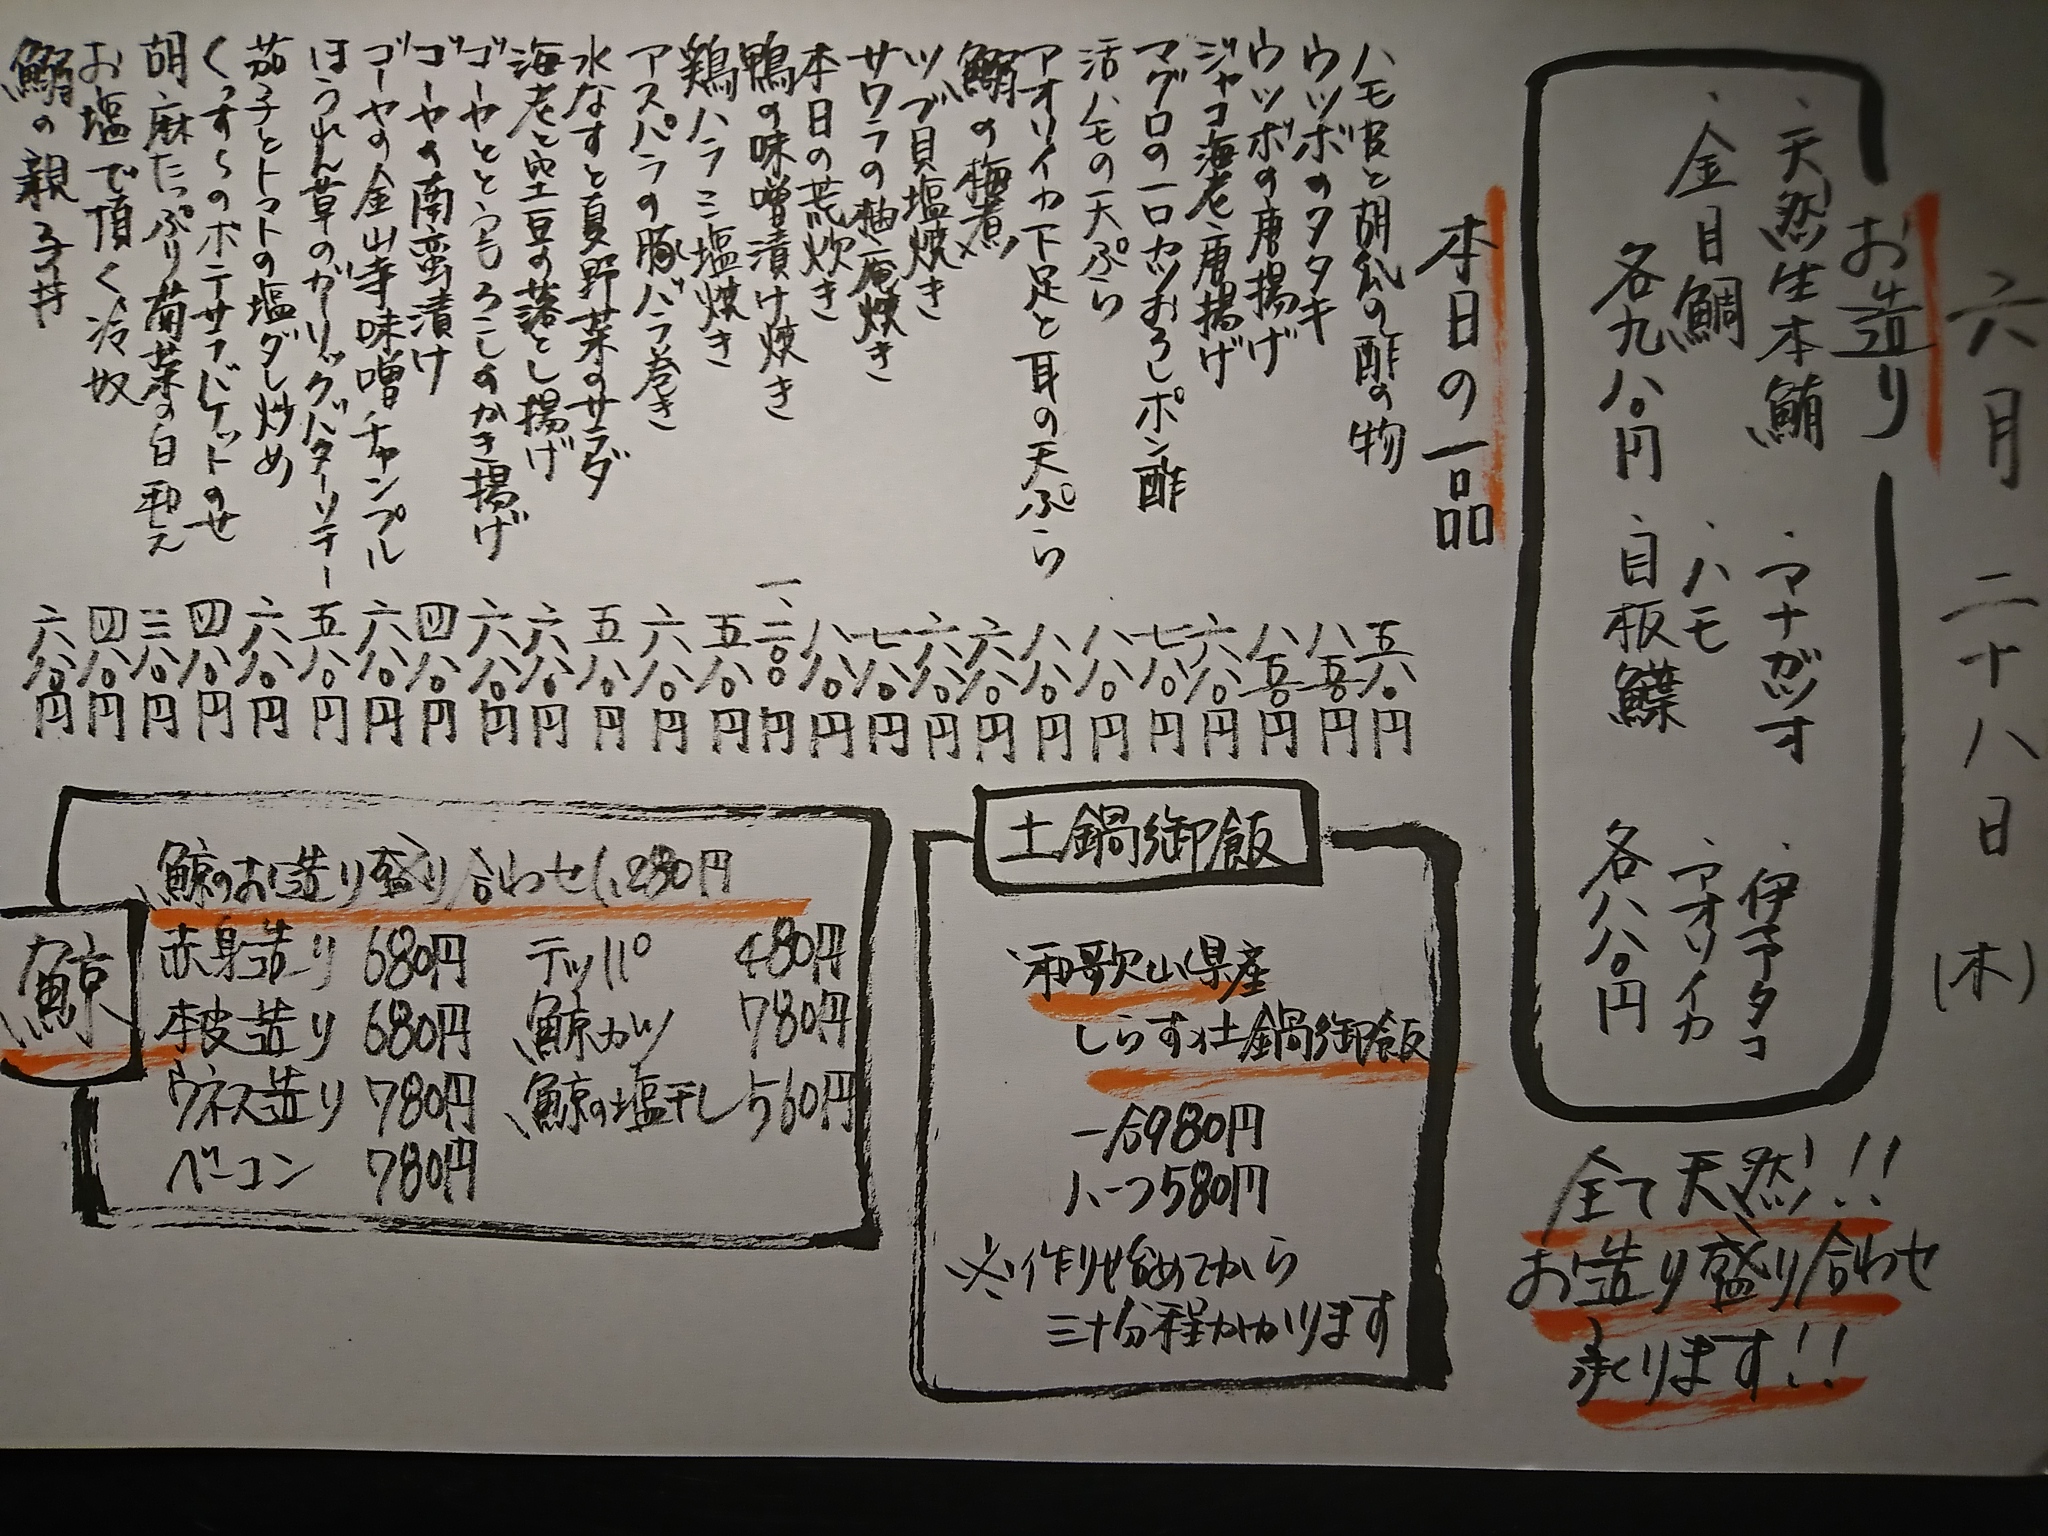 六月二十八日(木)
お造り
・天然生本鮪
・金目鯛
各九八〇円
・マナガツオ
・ハモ
・目板鰈
・伊予タコ
・アオリイカ
各八八〇円
全て天然!!
お造り盛り合わせ
承ります!!
本日の一品
ハモ皮と胡瓜の酢の物 五八〇円
ウツボのタタキ 八五〇円
ウツボの唐揚げ 八五〇円
ジャコ海老唐揚げ 六八〇円
マグロの一口カツおろしポン酢 七八〇円
活ハモの天ぷら 八八〇円
アオリイカ下足と耳の天ぷら 八八〇円
鰯の梅煮 六八〇円
ツブ貝塩焼き 六八〇円
サワラの柚庵焼き 七八〇円
本日の荒炊き 八八〇円
鴨の味噌漬け焼き 一、二〇〇円
鶏ハラミ塩焼き 五八〇円
アスパラの豚バラ巻き 六八〇円
水なすと夏野菜のサラダ 五八〇円
海老と空豆の落とし揚げ 六八〇円
ゴーヤととうもろこしのかき揚げ 六八〇円
ゴーヤの南蛮漬け 四八〇円
ゴーヤの金山寺味噌チャンプル 六八〇円
ほうれん草のガーリックバターソテー 五八〇円
茄子とトマトの塩ダレ炒め 六八〇円
くっすんのポテサラバケットのせ 四八〇円
胡麻たっぷり菊菜の白和え 三八〇円
お塩で頂く冷奴 四八〇円
鰯の親子丼 六八〇円
土鍋御飯
和歌山県産
しらす土鍋御飯
一合980円
ハーフ580円
※作り始めてから
三十分程かかります
鯨
鯨のお造り盛り合わせ1,280円
赤身造り 680円
本皮造り 680円
ウネス造り 780円
ベーコン 780円
テッパ 480円
鯨カツ 780円
鯨の塩干し 560円